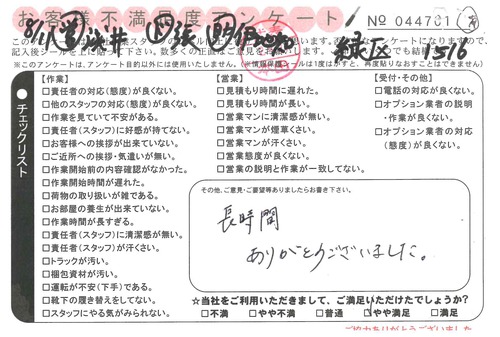 お客様不満足度アンケート!
No 044781
緑区
※このアンケートは、アンケート目的以外には使用いたしません。
チェックリスト
【作業】
□責任者の対応(態度)が良くない。
□他のスタッフの対応(態度)が良くない。
□作業を見ていて不安がある。
□責任者(スタッフ)に好感が持てない。
□お客様への挨拶が出来ていない。
□ご近所への挨拶・気遣いが無い。
□作業開始前の内容確認がなかった。
□作業開始時間が遅れた。
□荷物の取り扱いが雑である。
□お部屋の養生が出来ていない。
□作業時間が長すぎる。
□責任者(スタッフ)に清潔感が無い。
□責任者(スタッフ)が汗くさい。
□トラックが汚い。
□梱包資材が汚い。
□運転が不安(下手)である。
□靴下の履き替えをしてない。
□スタッフにやる気がみられない。
【営業】
□見積もり時間に遅れた。
□見積もり時間が長い。
□営業マンに清潔感が無い。
□営業マンが煙草くさい。
□営業マンが汗くさい。
□営業態度が良くない。
□営業の説明と作業が一致してない。
【受付・その他】
□電話の対応が良くない。
□オプション業者の説明
・作業が良くない。
□オプション業者の対応
(態度)が良くない。
その他、ご意見・ご要望等ありましたらお書き下さい。
長時間
ありがとうございました。
☆当社をご利用いただきまして、ご満足いただけたでしょうか?
□不満 □やや不満 □普通 □やや満足 □満足
ご協力ありがとうございました